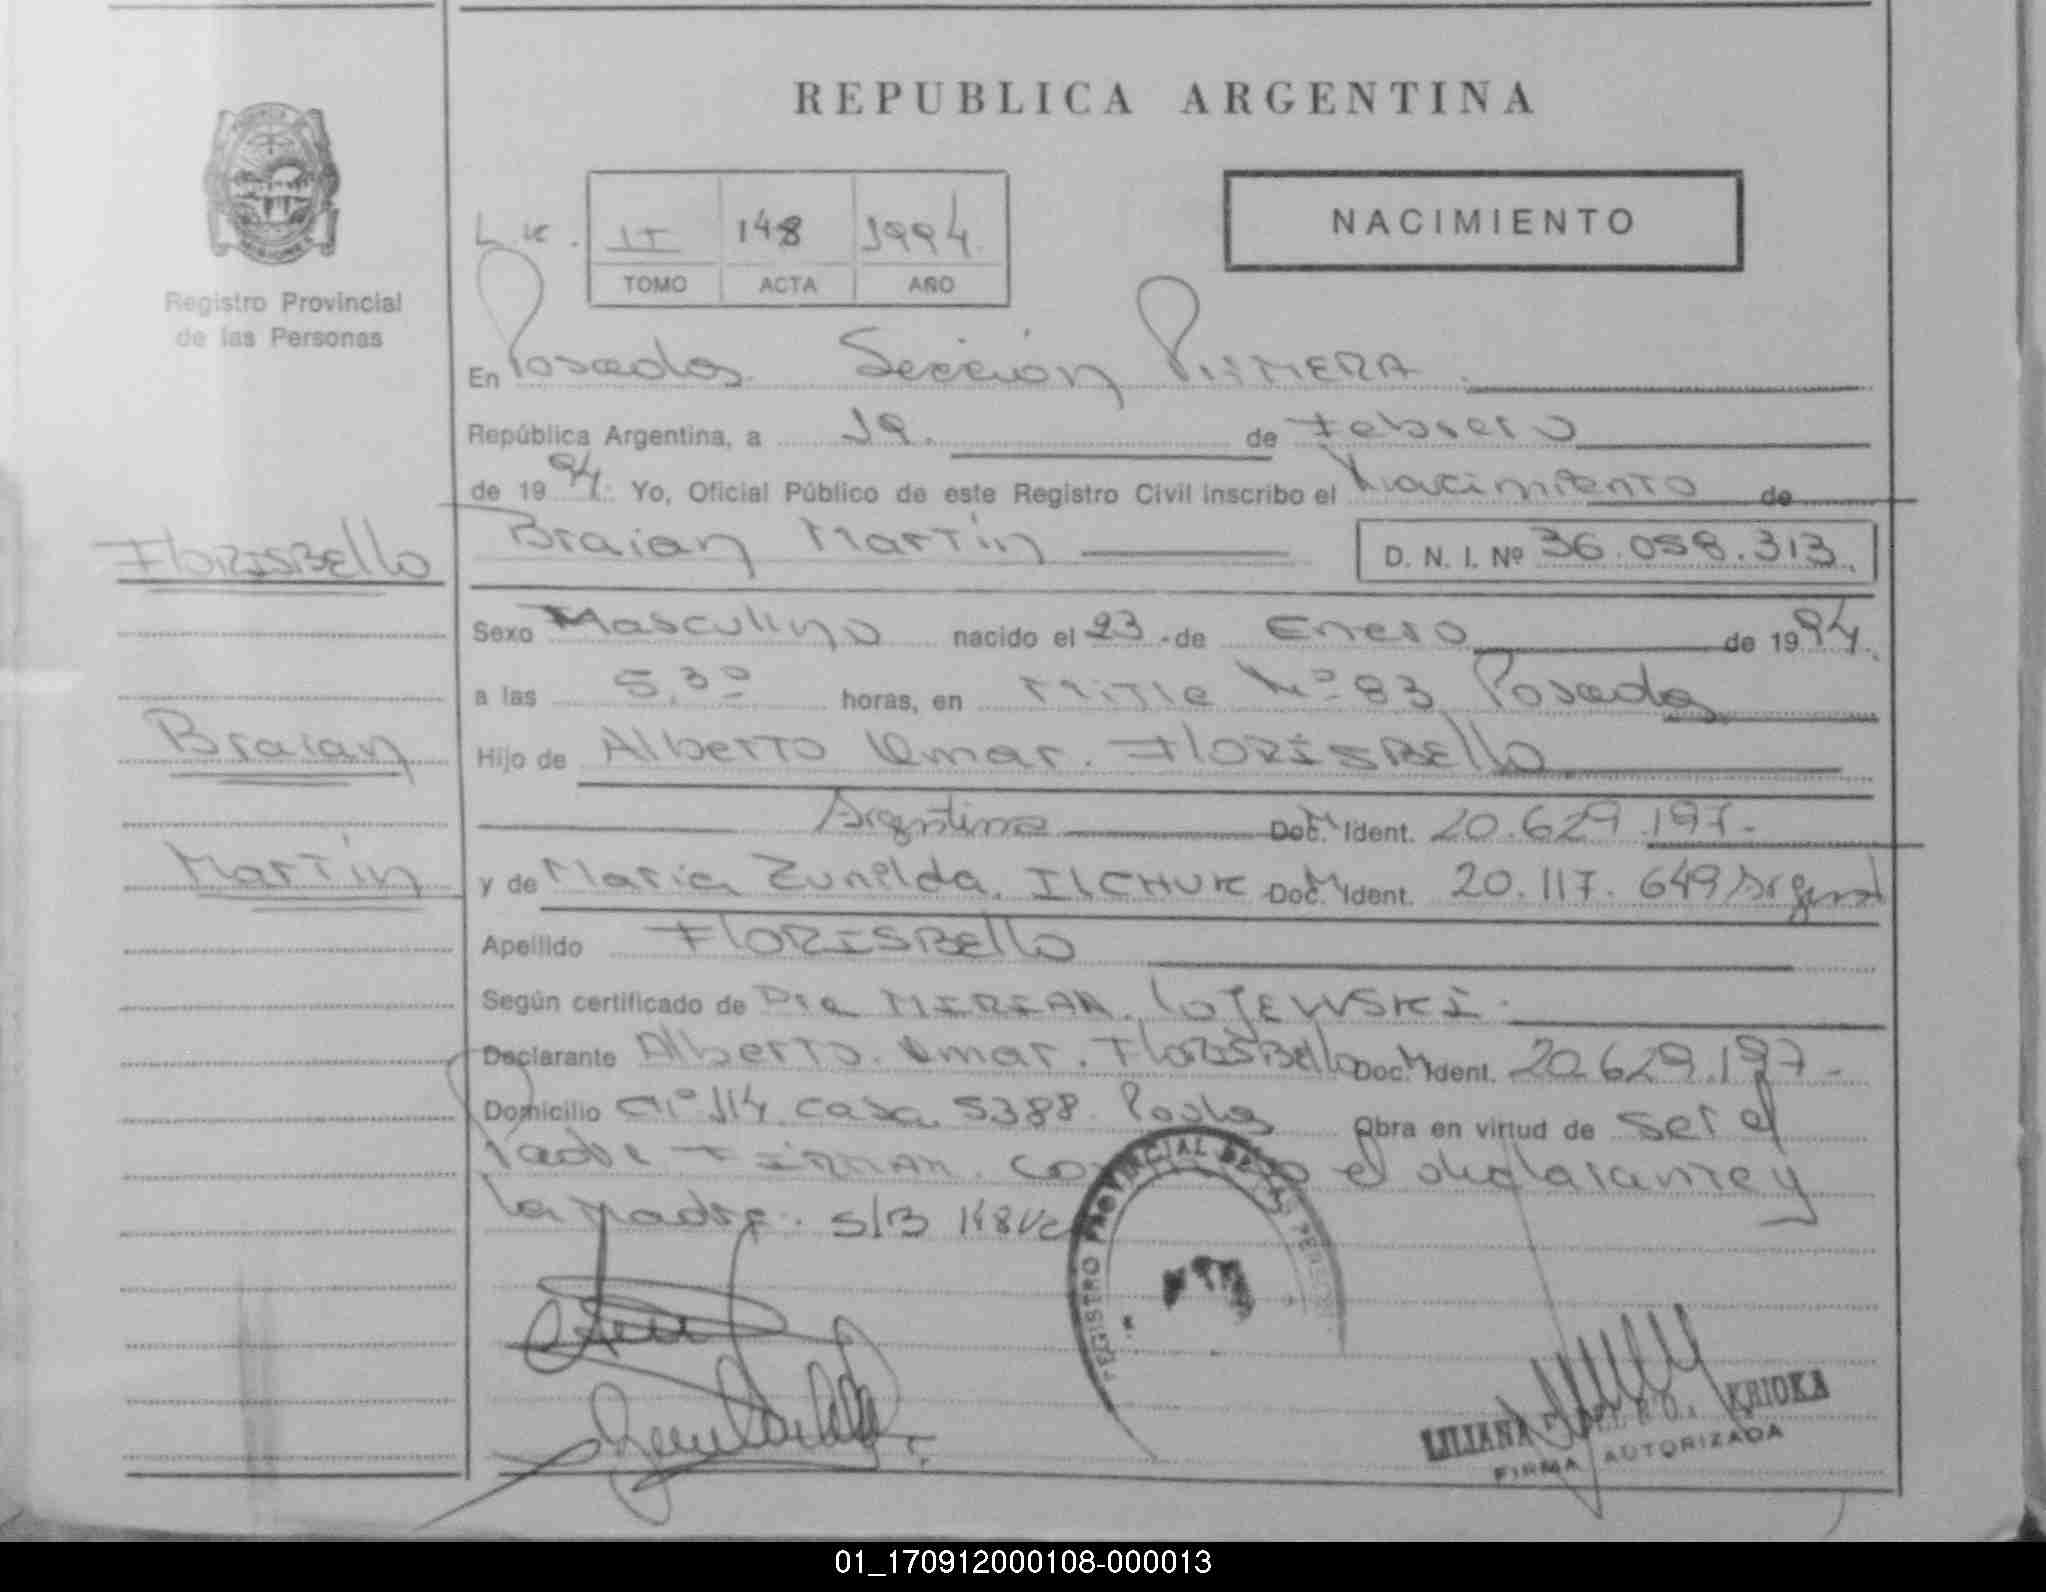 REPUBLICA ARGENTINA
NACIMIENTO
II 148 1994
TOMO ACTA AÑO
Registro Provincial
de las Personas
En Posadas Sección Primera
República Argentina, a 19. de Febrero
de 1994. Yo, Oficial Público de este Registro Civil inscribo el Nacimiento de
Florisbello
Braian Martín D. N. I. Nº 36.058.313.
Sexo Masculino nacido el 23 de Enero de 1994.
a las 5,30 horas, en Mitre Nº 83 Posadas
Braian
Hijo de Alberto Omar. Florisbello
Argentino Doc. Ident. 20.629.197.-
Martín
y de María Zunilda. ILCHUK Doc. Ident. 20.117.649
Apellido Florisbello
Según certificado de Dra MIRIAN. LOJEWSKI.
Declarante Alberto. Omar. Florisbello Doc. Ident. 20.629.197.-
Domicilio 114 casa 5388. Obra en virtud de ser el
Padre FIRMAN. el declarante y
la madre. S/B 148
REGISTRO PROVINCIAL DE LAS
LILIANA KRIOKA
FIRMA AUTORIZADA
01_170912000108-000013